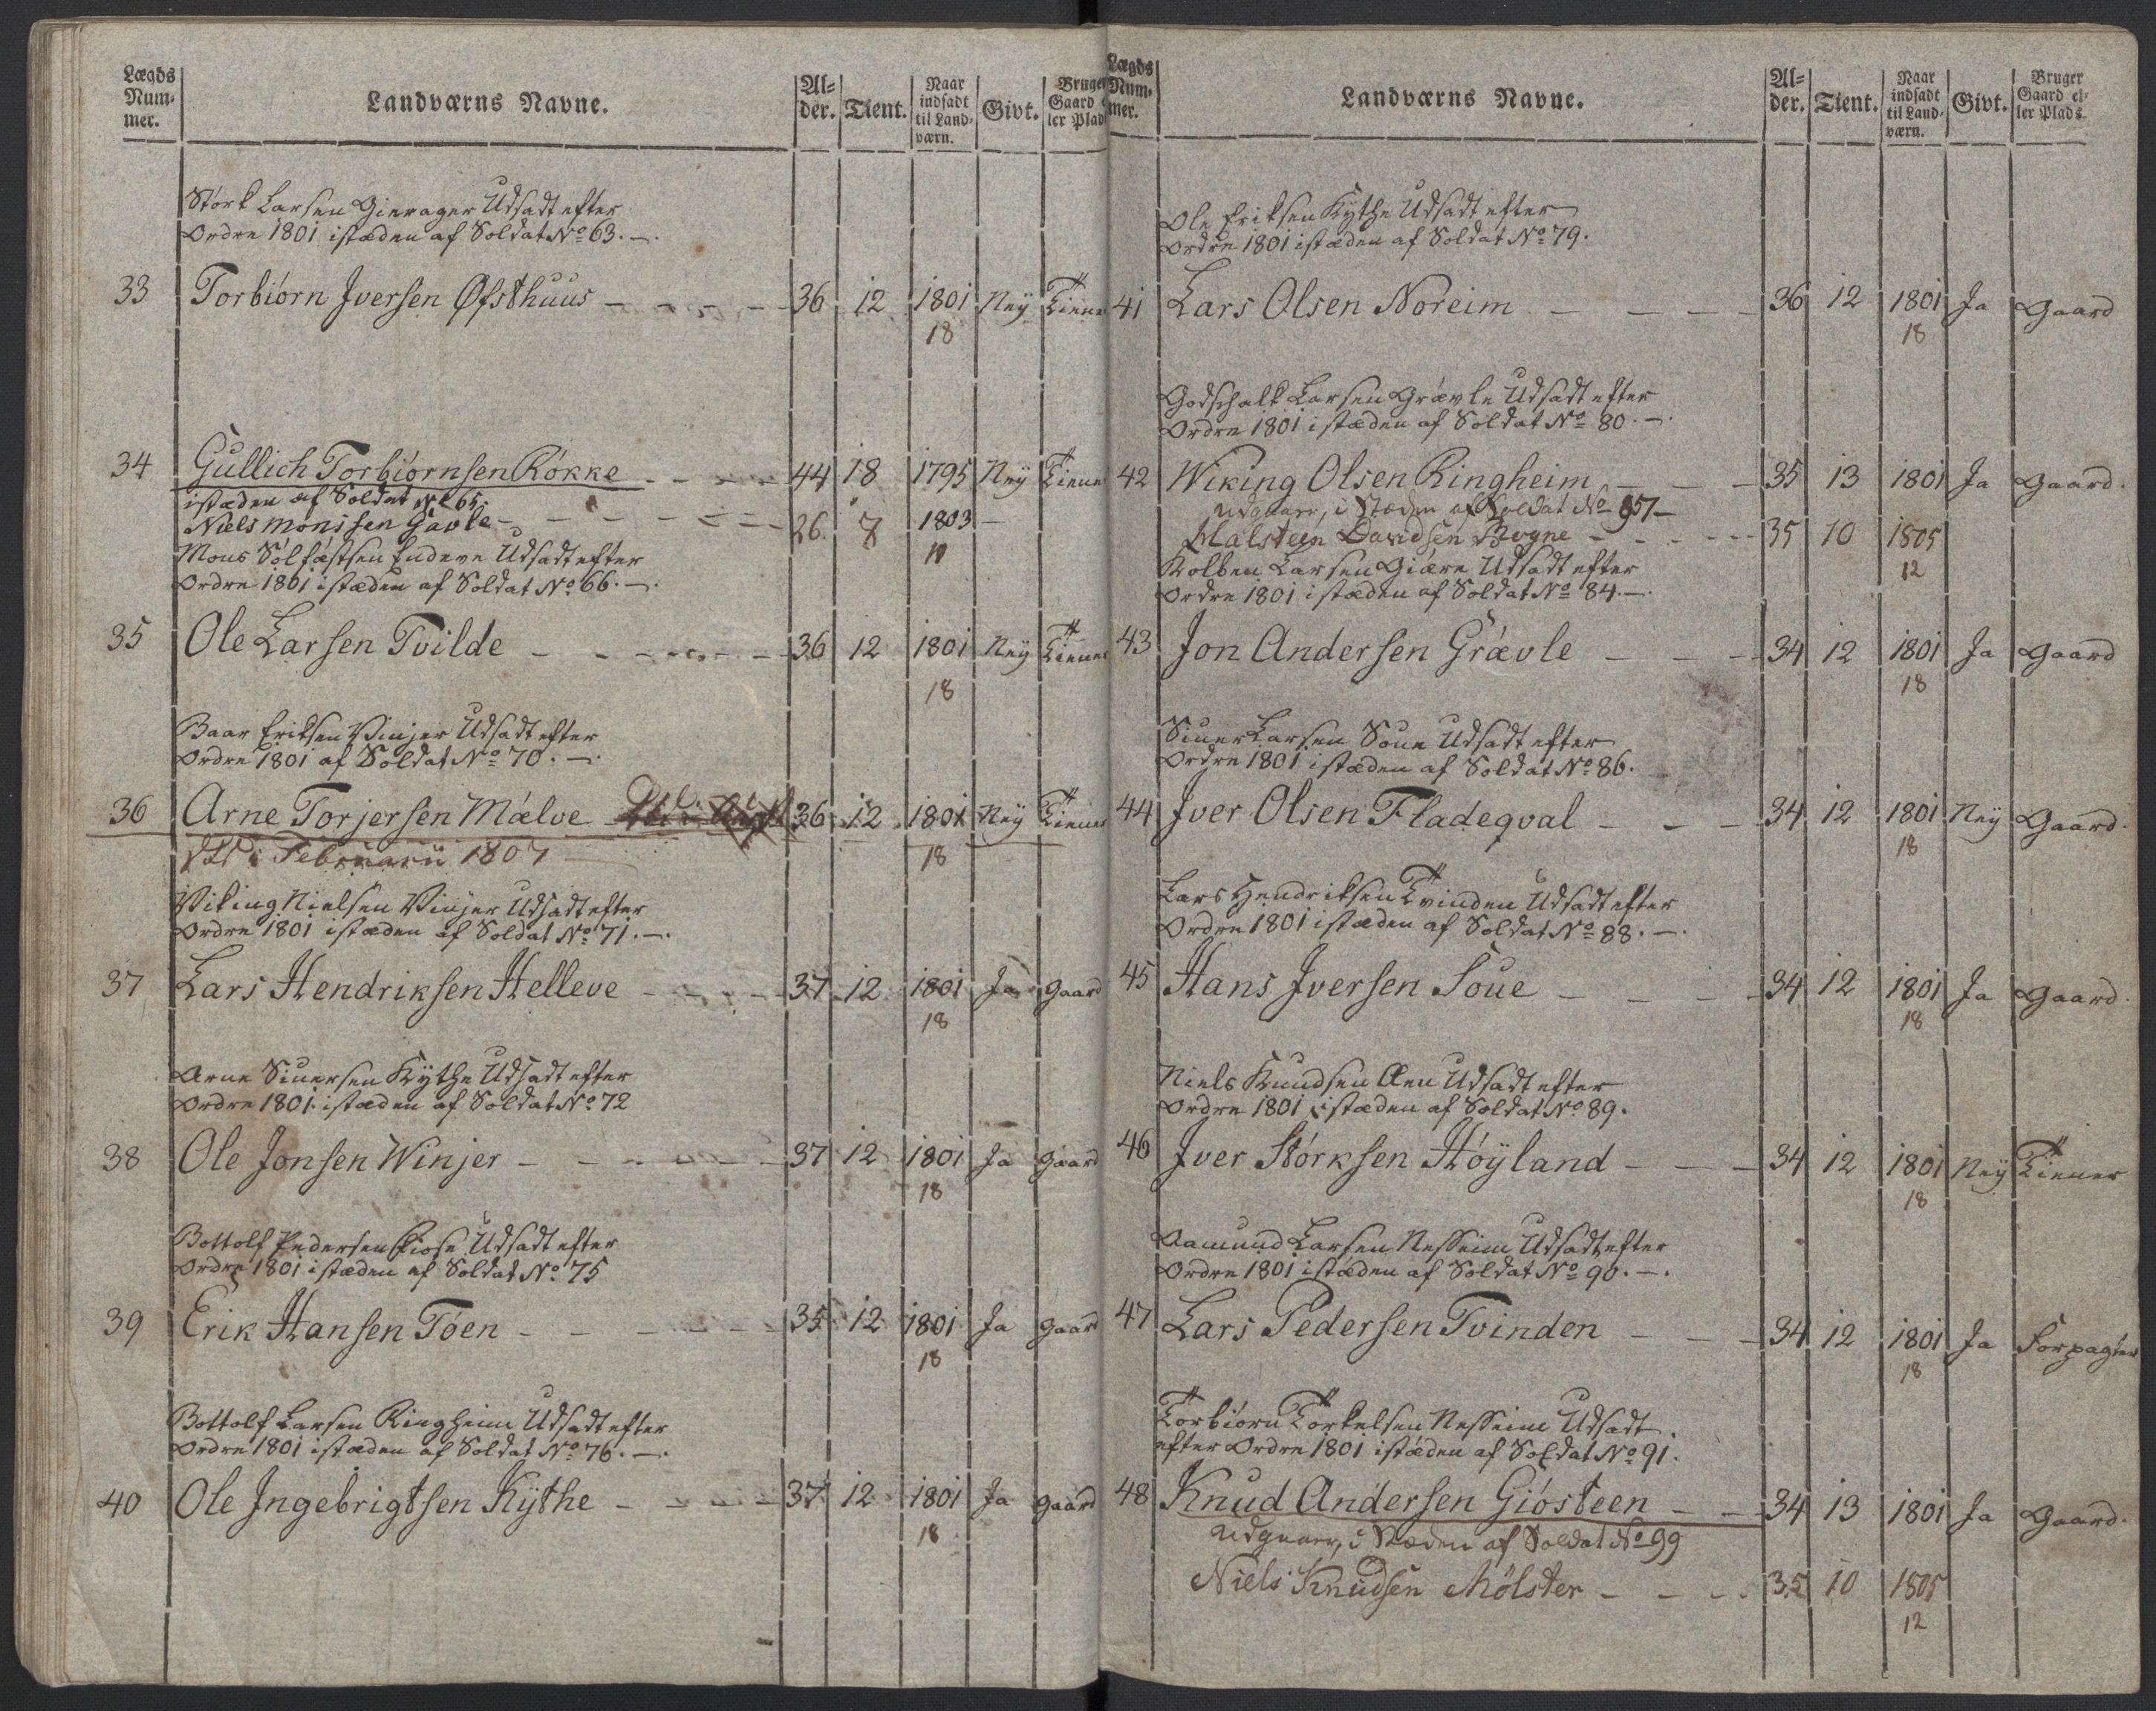 Lægds Num- mer. Landværns Navne. Al- der. Tient. Naar indsadt til Land- værn. Givt. Bruger Gaard ler Plad
Størk Larsen Gierager Udsadt efter
Ordre 1801 istæden af Soldat No 63. -.
33 Torbiørn Iversen Øfsthuus - - - - 36 12 1801 Neÿ Tiener
18
34 Gullich Torbiørnsen Røkke - - - 44 18 1795 Neÿ Tiener
istæden af Soldat No 65.
Niels Monssen Gavle - - - - - 26. 7 1803 -
Mons Sølfæstsen Endeve Udsadt efter 11
Ordre 1801 istæden af Soldat No 66. -.
35 Ole Larsen Tvilde - - - - - 36 12 1801 Neÿ Tiener
18
Baar Eriksen Vinjer Udsadt efter
Ordre 1801 af Soldat No 70. -.
36 Arne Torjersen Mælve 36 12 1801 Neÿ Tiener
Februarii 1807 18
Viking Nielsen Vinjer Udsadt efter
Ordre 1801 istæden af Soldat No 71. -.
37 Lars Hendriksen Helleve - - - - 37 12 1801 Ja gaard
18
Arne Siversen Kÿthe Udsadt efter
Ordre 1801 istæden af Soldat No 72
38 Ole Jonsen Winjer - - - - - 37 12 1801 Ja gaard
18
Bottolf Pedersen Fiose Udsadt efter
Ordre 1801 istæden af Soldat No 75
39 Erik Hansen Tøen - - - - - 35 12 1801 Ja gaard
18
Bottolf Larsen Ringheim Udsadt efter
Ordre 1801 istæden af Soldat No 76. -.
40 Ole Ingebrigtsen Kÿthe - - - - 37 12 1801 Ja gaard
18
Lægds Num- mer. Landværns Navne. Al- der. Tient. Naar indsadt til Land- værn. Givt. Bruger Gaard el- ler Plads
Ole Eriksen Kÿthe Udsadt efter
Ordre 1801 istæden af Soldat No 79.
41 Lars Olsen Noreim - - - - 36 12 1801 Ja Gaard
18
Godschalk Larsen Grævle Udsadt efter
Ordre 1801 istæden af Soldat No 80. -.
42 Wiking Olsen Ringheim - - - 35 13 1801 Ja Gaard.
udgaaer, i Stæden af Soldat No 957 -
Halsteen Davidsen Bogne - - - - 35 10 1805
Kolben Larsen Giære Udsadt efter 12
Ordre 1801 istæden af Soldat No 84. -.
43 Jon Andersen Grævle - - - 34 12 1801 Ja Gaard
18
Siver Larsen Soue Udsadt efter
Ordre 1801 istæden af Soldat No 86.
44 Iver Olsen Fladeqval - - - 34 12 1801 Neÿ Gaard.
18
Lars Hendriksen Tvinden Udsadt efter
Ordre 1801 istæden af Soldat No 88. -.
45 Hans Iversen Soue - - - - 34 12 1801 Ja Gaard.
18
Niels Knudsen Æen Udsadt efter
Ordre 1801 istæden af Soldat No 89.
46 Iver Størksen Høÿland - - - 34 12 1801 Neÿ Tiener
18
Aamund Larsen Nesseim Udsadt efter
Ordre 1801 istæden af Soldat No 90. -.
47 Lars Pedersen Tvinden - - - 34 12 1801 Ja Forpagter
18
Torbiørn Torkelsen Nesseim Udsadt.
efter Ordre 1801 istæden af Soldat No 91.
48 Knud Andersen Giøsteen - - 34 13 1801 Ja Gaard.
udgaaer, i Stæden af Soldat No 99
Niels Knudsen Mølster - - - 35 10 1805
12